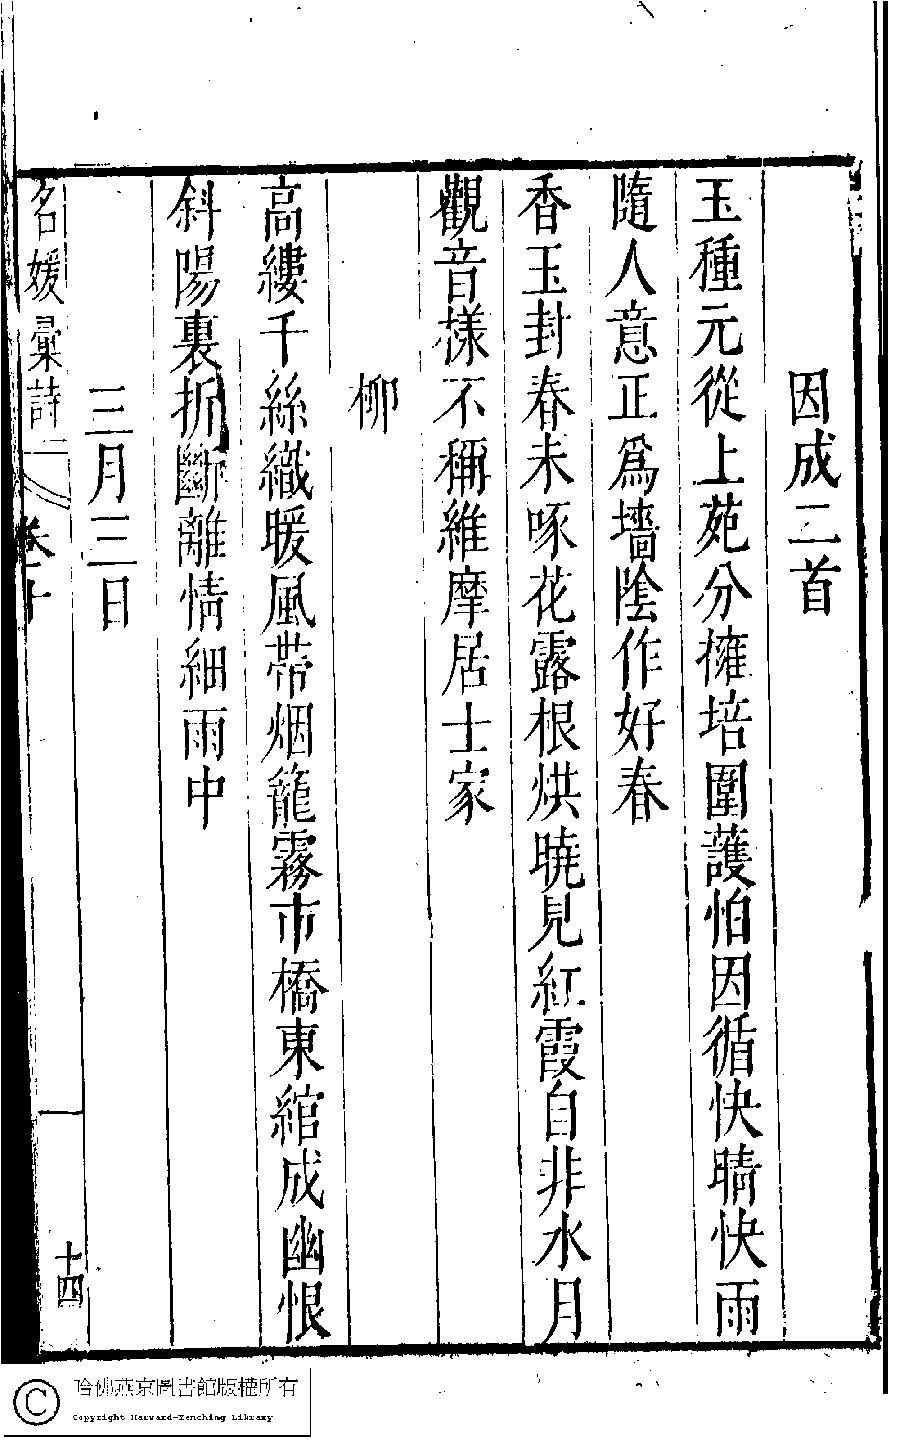 因成二首
玉種元從上苑分擁培圍護怕因循快晴快雨
隨人意正爲墻陰作好春
香玉封春未啄花露根烘曉見紅霞自非水月
觀音樣不稱維摩居士家
柳
高縷千絲織暖風帶烟籠霧市橋東綰成幽恨
斜陽裏折斷離情細雨中
三月三日
名媛彙詩 卷十 十四
哈佛燕京圖書館版權所有
Copyright Harvard-Yenching Library